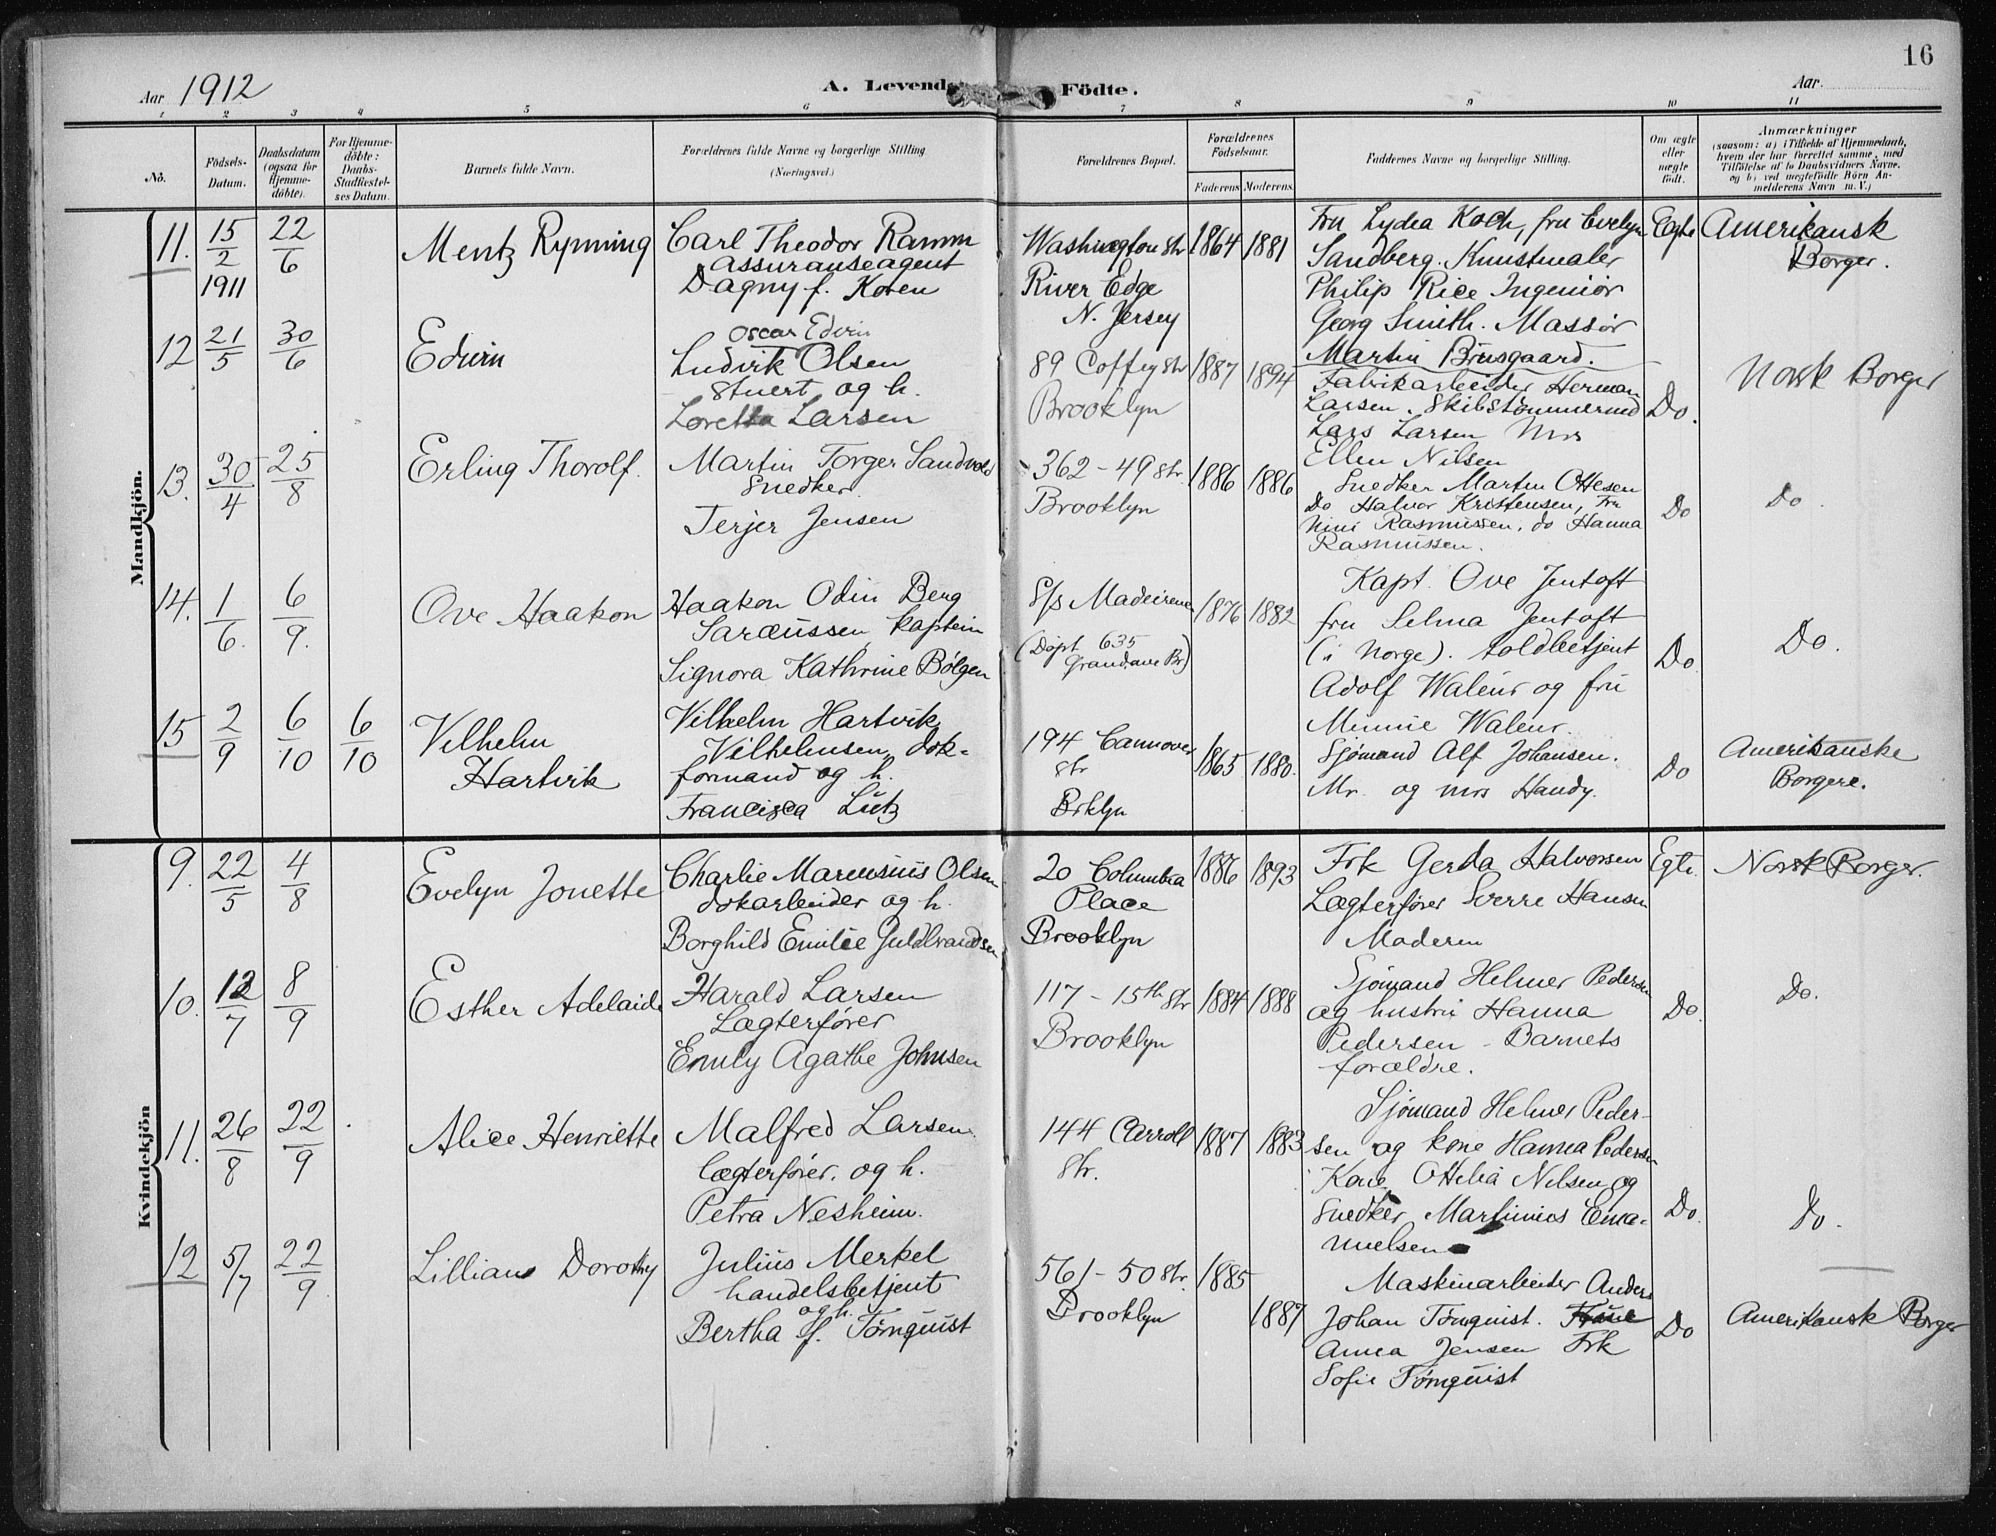 16
Aar 1912
A. Levende Födte.
Aar
1 2 3 4 5 6 7 8 9 10 11
No.
Födsels-Datum.
Daabsdatum (ogsaa for Hjemmedöbte).
For Hjemmedöbte: Daabs-Stadfæstelses Datum.
Barnets fulde Navn.
Forældrenes fulde Navne og borgerlige Stilling
(Næringsvei.)
Forældrenes Bopæl.
Forældrenes Födselsaar.
Faderens Moderens
Faddernes Navne og borgerlige Stilling.
Om ægte eller uægte födt.
Anmærkninger
(saasom: a) i Tilfælde af Hjemmedaab,
hvem der har forrettet samme, med
Tilföielse af to Daabsvidners Navne,
og b) ved uegtefödte Börn Anmelderens Navn m. V.)
Mandkjön.
11. 15/2 1911 22/6
Mentz Rynning
Carl Theodor Ramm
assuranseagent
Dagny f. Koren
Washington Str
River Edge
N. Jersey
1864 1881
Fru Lydia Koch, fru Evelyn
Sandberg. Kunstmaler
Philip Rice Ingeniör
Georg Smith. Massör
Martin Brusgaard.
Egte
Amerikansk
Borger.
12 21/5 30/6
Edwin
Oscar Edvin
Ludvik Olsen
Stuert og h.
Loretta Larsen
89 Coffey Str
Brooklyn
1887 1894
Fabrikarbeider Herman
Larsen. Skibstømmermd
Lars Larsen Mrs
Ellen Nilsen
Do.
Norsk Borger
13. 30/4 25/8
Erling Thorolf.
Martin Torger Sandvold
Snedker.
Terjer Jensen
362 - 49 Str.
Brooklyn
1886 1886
Snedker Martin Ottesen
Do Halvor Kristensen, Fru
Nini Rasmussen, do Hanna
Rasmussen.
Do
Do.
14. 1/6. 6/9.
Ove Haakon
Haakon Odin Berg
kaptein
Signora Kathrine Bølgen
S/s
(Døpt 635
Grand ave Br)
1876 1882
Kapt. Ove Jentoft
fru Selma Jentoft
(i Norge). toldbetjent
Adolf Waleur og fru
Minnie Waleur.
Do
Do.
15 2/9 6/10 6/10
Vilhelm
Hartvik
Vilhelm Hartvik
Vilhelmsen, dok-
formand og h.
Francisca Lütz
194 Cannover
Str
Brklyn
1865 1880.
Sjømand Alf Johansen.
Mr. og mrs Handy.
Do
Amerikanske
Borgere.
Kvindekjön
9. 22/5 4/8
Evelyn Jonette
Charlie Marensius Olsen
dokarbeider og h.
Borghild Emilie Guldbrandsen
20 Columbia
Place
Brooklyn
1886 1893
Frk Gerda Halvorsen
Lægterfører Sverre Hansen
Moderen
Egte.
Norsk Borger.
10. 12/7 8/9
Esther Adelaide
Harald Larsen
Lægterfører
Emily Agathe Johnsen
117 - 15th Str
Brooklyn
1884 1888
Sjømand Helmer Pedersen
og hustru Hanna
Pedersen - Barnets
forældre.
Do.
Do.
11. 26/8 22/9
Alice Henriette
Malfred Larsen.
lægterfører. og h.
Petra Nesheim.
144 Carroll
Str.
1887 1883
Sjømand Helmer Peder-
sen og kone Hanna Pedersen
Kone Ottilia Nilsen og
Snedker Martinius Ema-
nuelsen
Do.
Do.
12 5/7 22/9
Lillian Dorothy
Julius Merkel
handelsbetjent
og h.
Bertha f. Tørnquist
561 - 50 Str.
Brooklyn
1885
1887
Maskinarbeider Anders
Johan Tørnquist.
Anna Jensen Frk
Sofie Tørnquist
Do
Amerikansk Borger